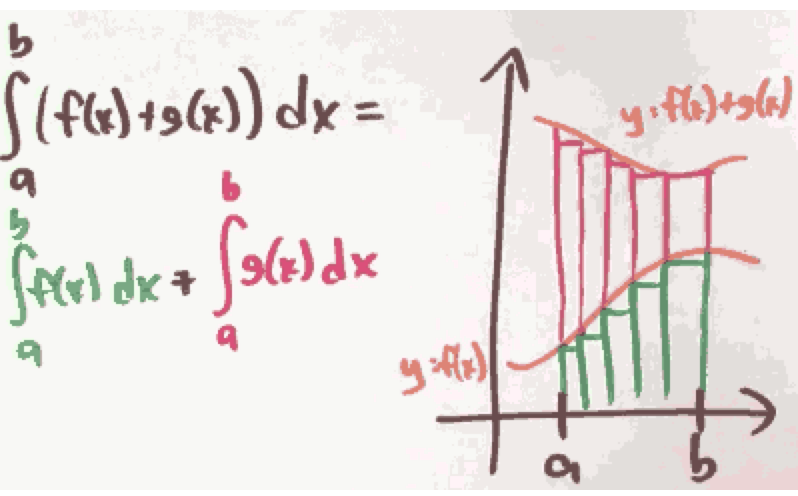 b
∫(f(x)+g(x)) dx =
a
b b
∫f(x) dx + ∫g(x) dx
a a
y=f(x)+g(x)
y=f(x)
a b